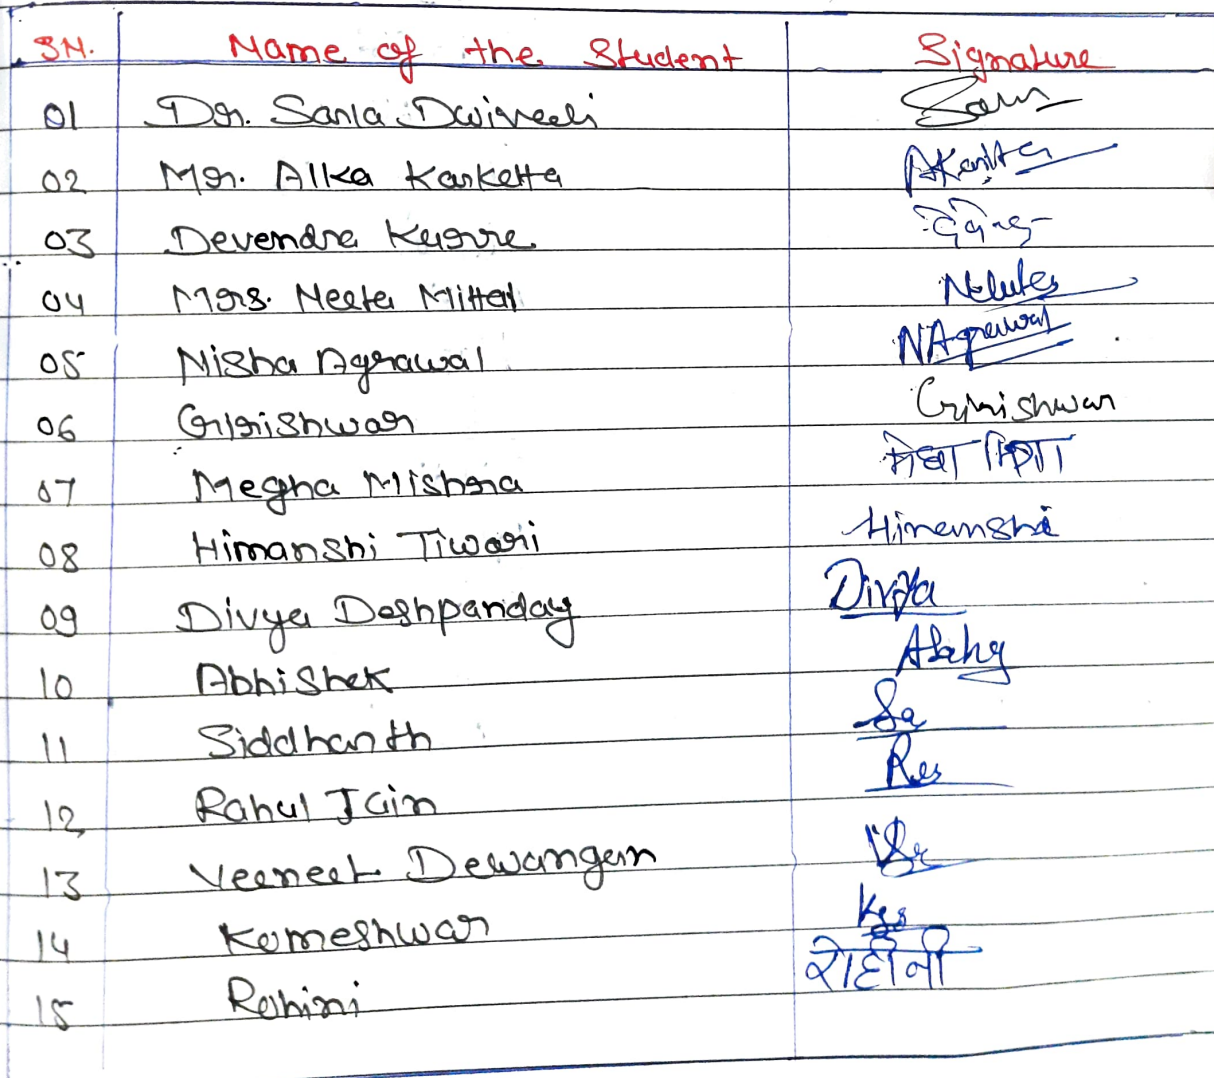 S.N. Name of the Student Signature
01 Dr. Sarla Dwivedi
02 Mr. Alka Karketta
03 Devendra Kurre
04 Mrs. Neeta Mittal
05 Nisha Agrawal NAgrawal
06 Girishwar Girishwar
07 Megha Mishra मेघा मिश्रा
08 Himanshi Tiwari Himanshi
09 Divya Deshpanday Divya
10 Abhishek
11 Siddhanth
12 Rahul Jain
13 Veeneet Dewangan
14 Komeshwar
15 Rohini रोहीनी